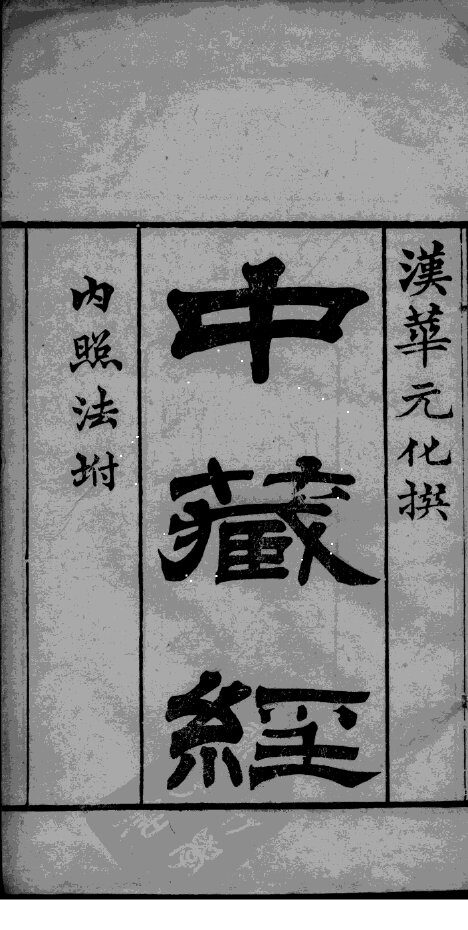 漢華元化撰
中藏經
内照法坿